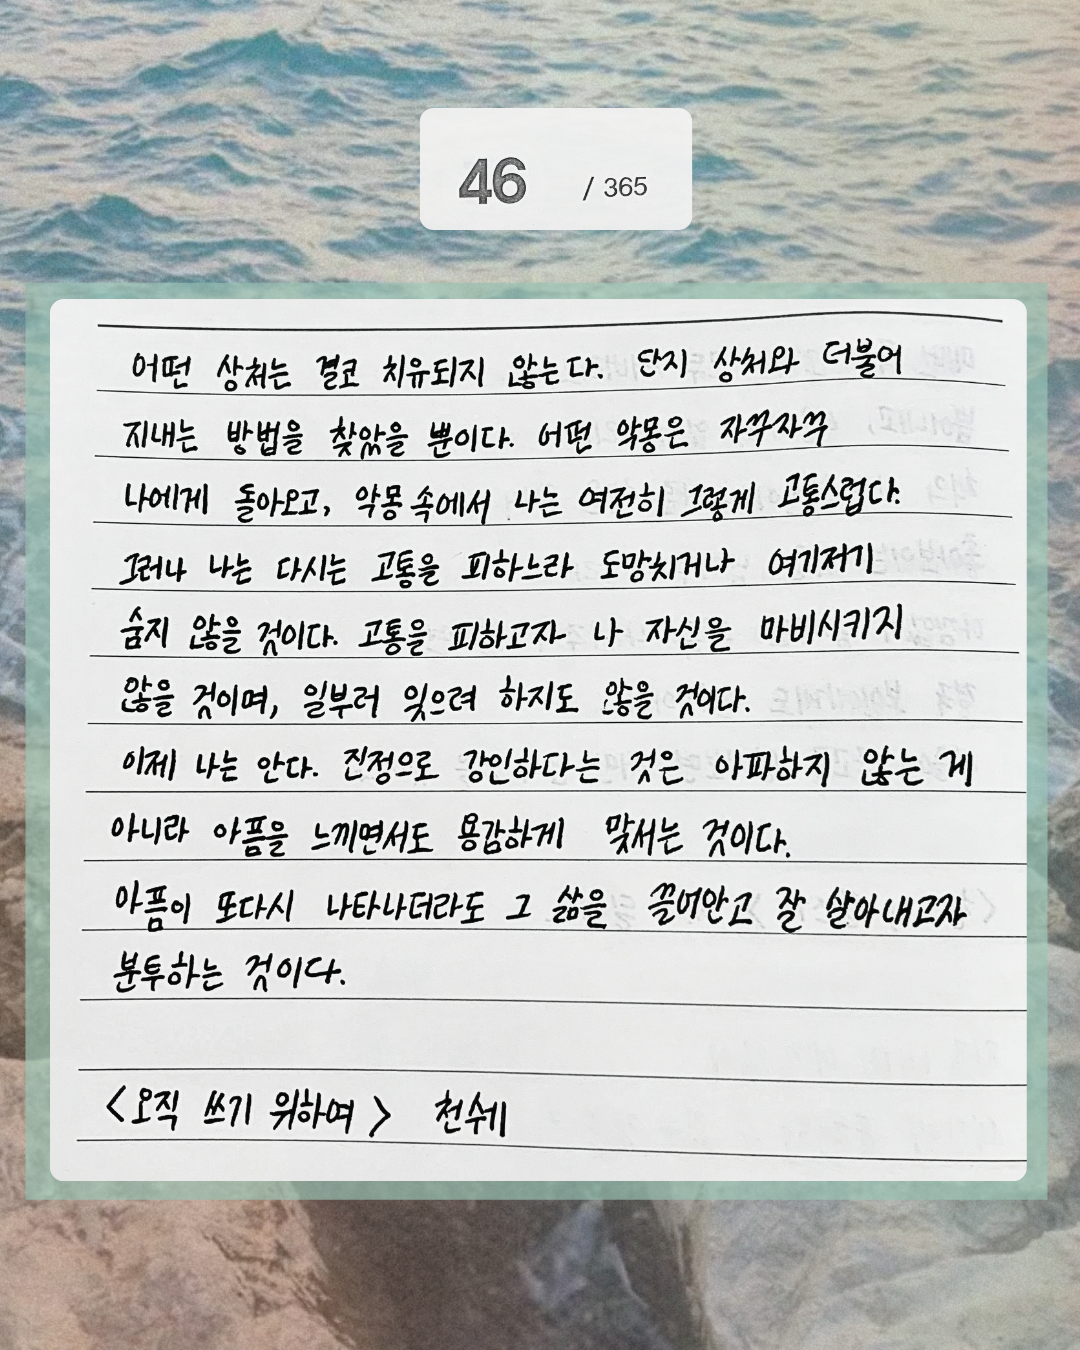 46 / 365
어떤 상처는 결코 치유되지 않는다. 단지 상처와 더불어
지내는 방법을 찾았을 뿐이다. 어떤 악몽은 자꾸자꾸
나에게 돌아오고, 악몽 속에서 나는 여전히 그렇게 고통스럽다.
그러나 나는 다시는 고통을 피하느라 도망치거나 여기저기
숨지 않을 것이다. 고통을 피하고자 나 자신을 마비시키지
않을 것이며, 일부러 잊으려 하지도 않을 것이다.
이제 나는 안다. 진정으로 강인하다는 것은 아파하지 않는 게
아니라 아픔을 느끼면서도 용감하게 맞서는 것이다.
아픔이 또다시 나타나더라도 그 삶을 끌어안고 잘 살아내고자
분투하는 것이다.
<오직 쓰기 위하여> 천쉐